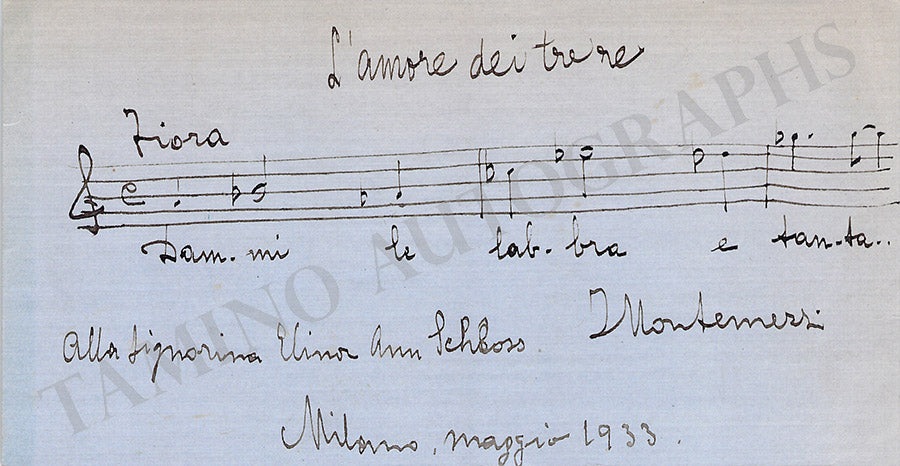 L'amore dei tre re
Fiora
Dam-mi le lab-bra e tan-ta..
Alla Signorina Elinor Ann Schloss
IMontemezzi
Milano, maggio 1933.
TAMINO AUTOGRAPHS